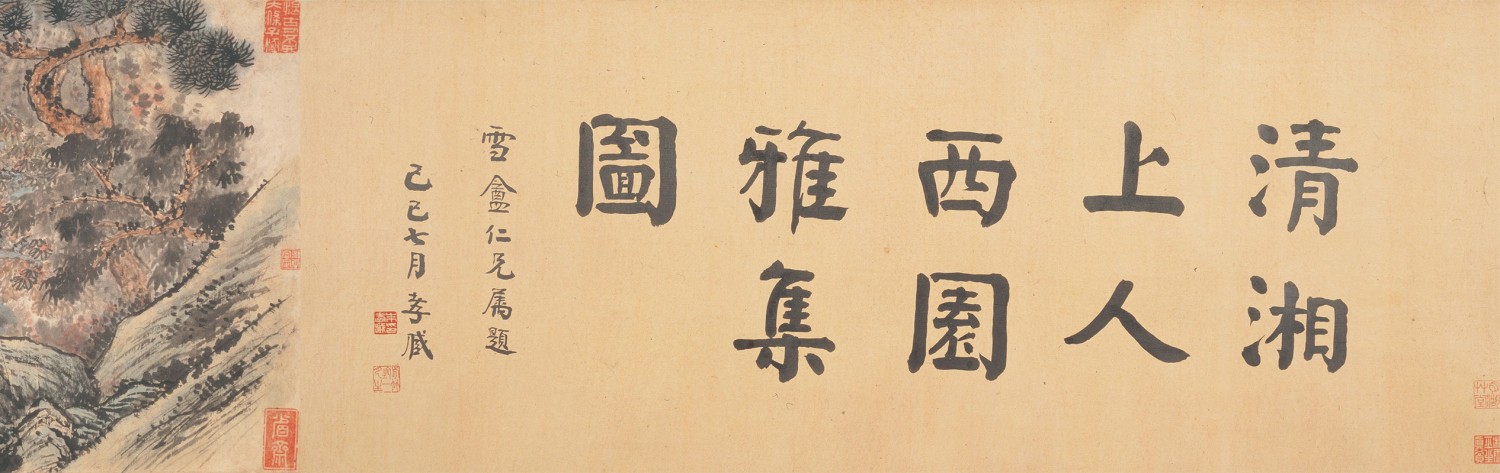 清湘
上人
西園
雅集
圖
雪盦仁兄屬題
己巳七月孝臧